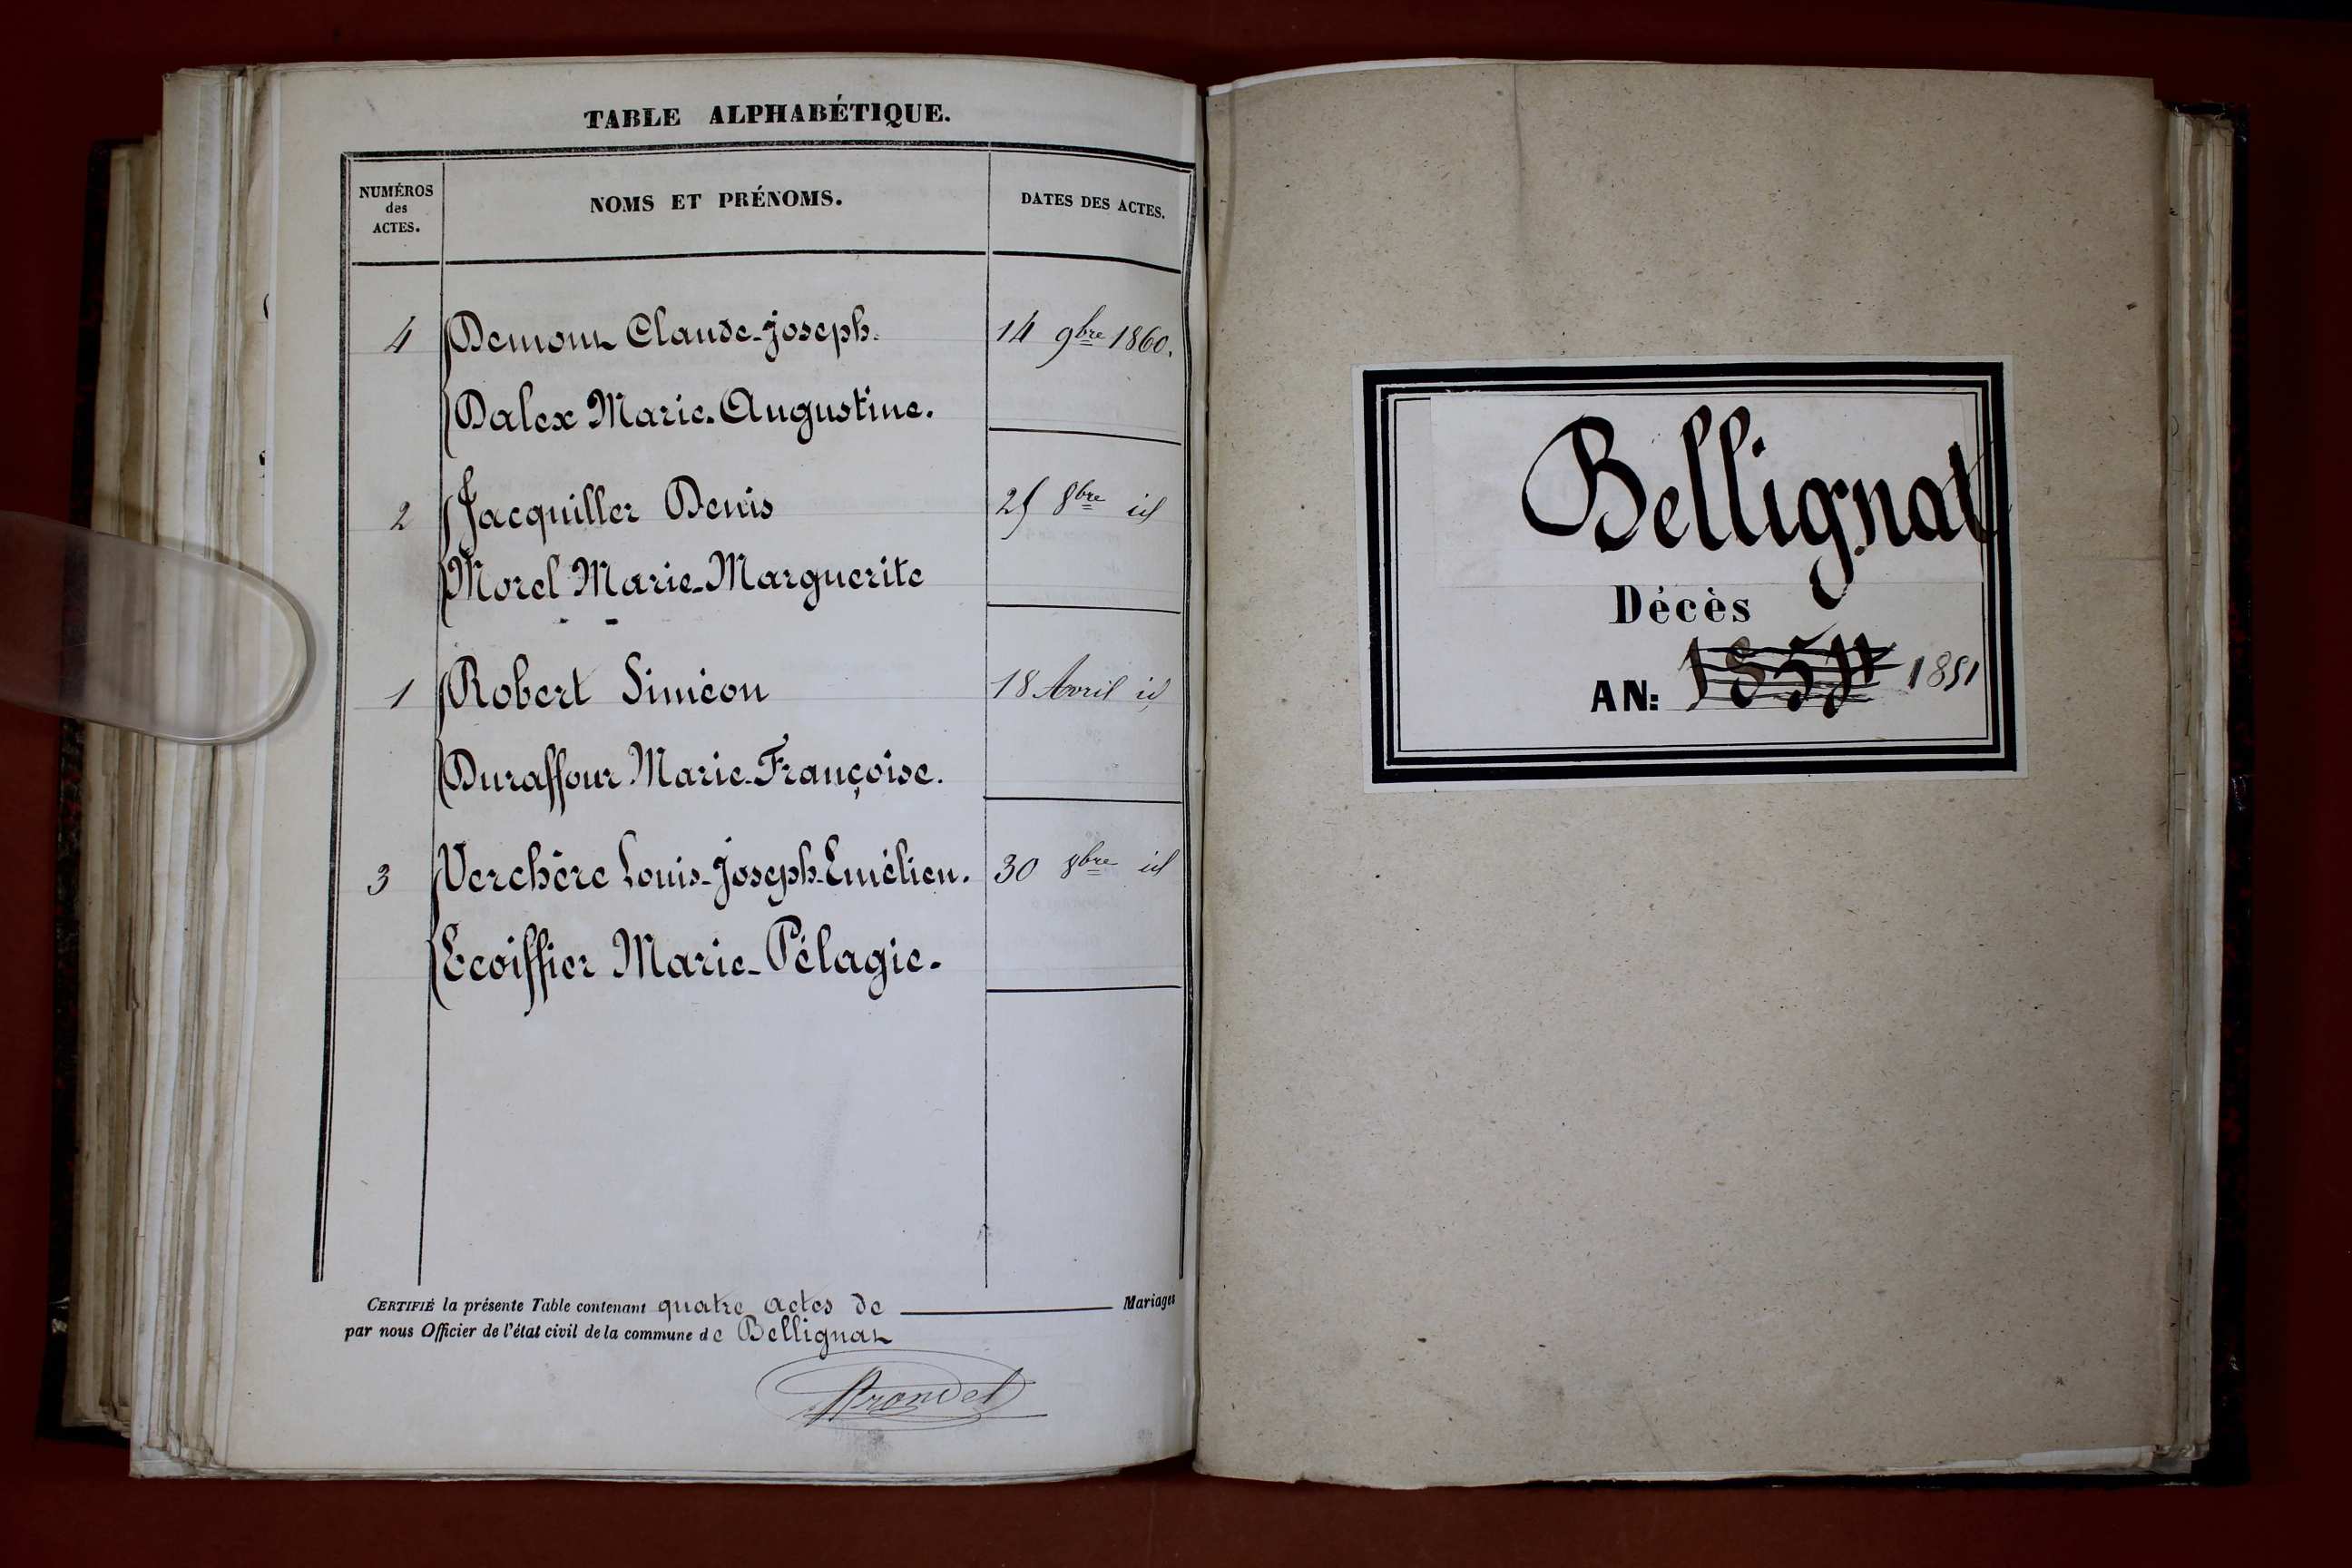 TABLE ALPHABÉTIQUE.
NUMÉROS
des
ACTES.
NOMS ET PRÉNOMS.
DATES DES ACTES.
4 Demont Claude-Joseph. 14 9bre 1860.
Dalex Marie-Augustine.
2 Jacquiller Denis 25 8bre id
Morel Marie-Marguerite
1 Robert Siméon 18 Avril id
Duraffour Marie-Françoise.
3 Verchère Louis-Joseph-Emélien. 30 8bre id
Ecoiffier Marie-Pélagie.
CERTIFIÉ la présente Table contenant quatre actes de Mariages
par nous Officier de l'état civil de la commune de Bellignat
Bellignat
Décès
AN: 1851